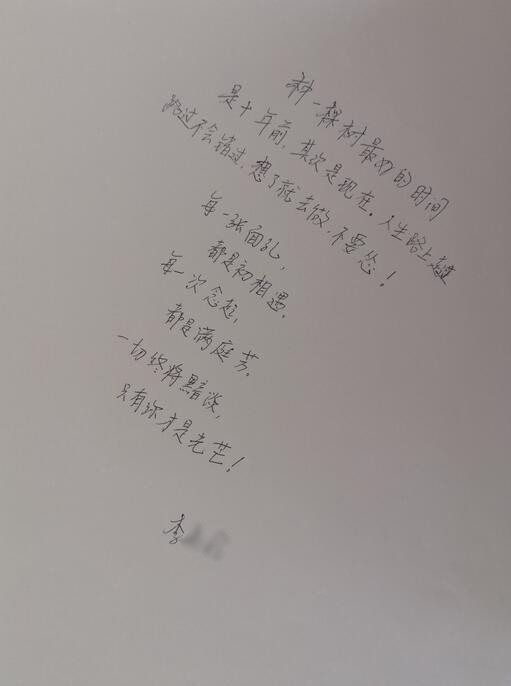 种一棵树最好的时间
是十年前,其次是现在。人生路上走
路过不会错过,想了就去做,不要怂!
每一张面孔,
都是初相遇。
每一次念起,
都是满庭芳。
一切终将黯淡,
只有你才是光芒!
李